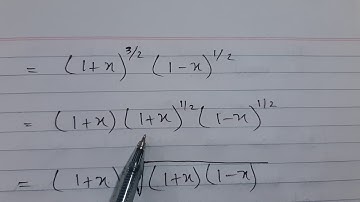 = (1+x)^{3/2} (1-x)^{1/2}
= (1+x) (1+x)^{1/2} (1-x)^{1/2}
= (1+x) √(1+x)(1-x)